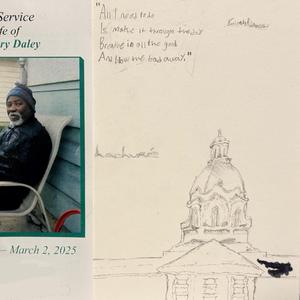 Service
fe of
ry Daley
– March 2, 2025
"All I need to do
Is make it through the day
Breathe in all the good
And blow the bad away."